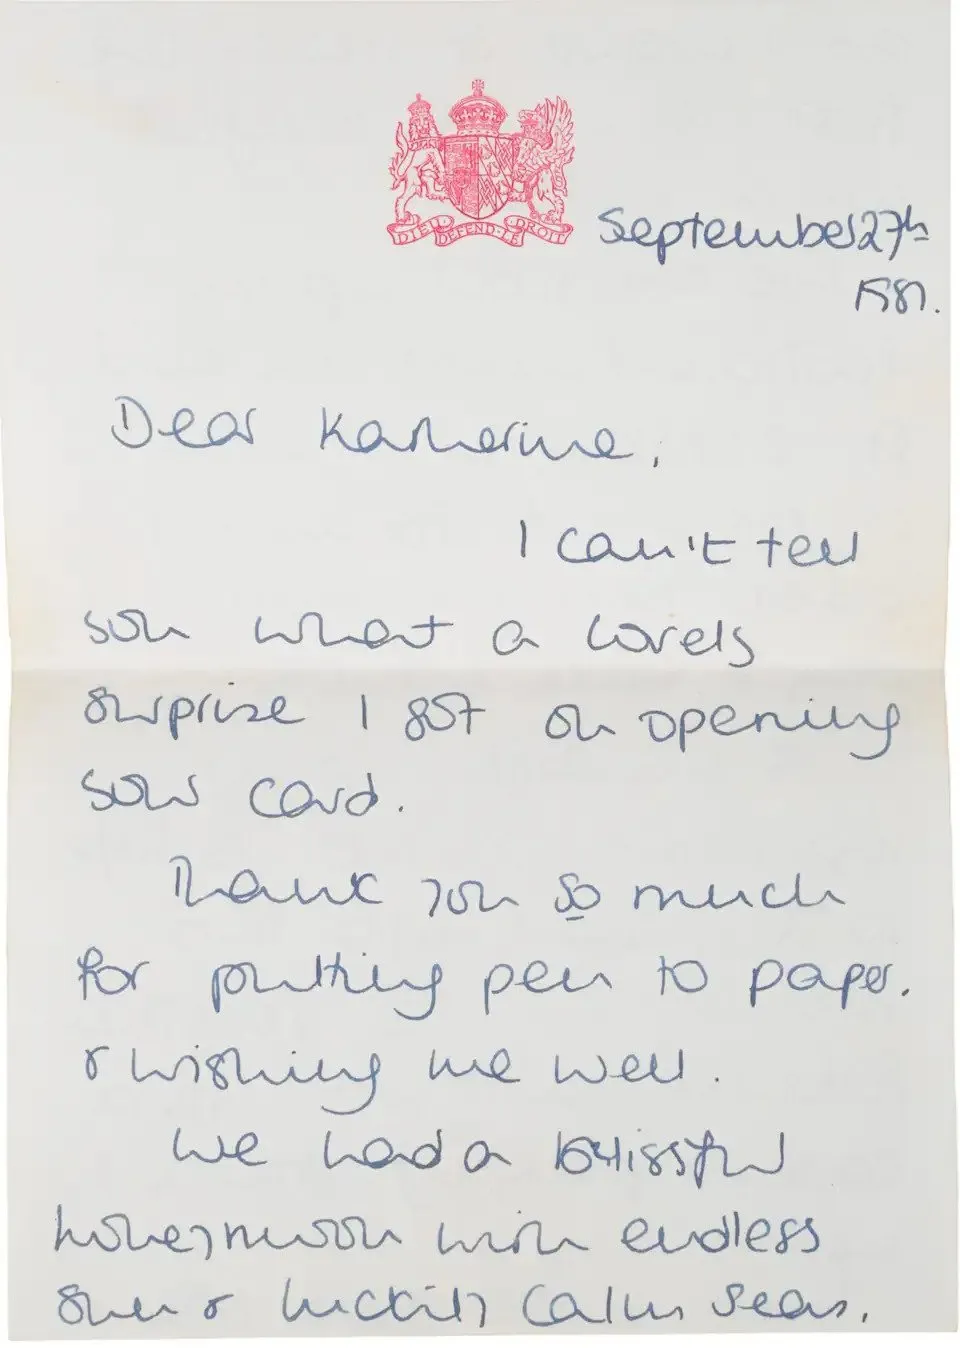 DIEU DEFEND LE DROIT
September 27th
1981.
Dear Katherine,
I can't tell
you what a lovely
surprise I got on opening
your card.
Thank you so much
for putting pen to paper.
& wishing me well.
We had a blissful
honeymoon with endless
sun & luckily calm seas,